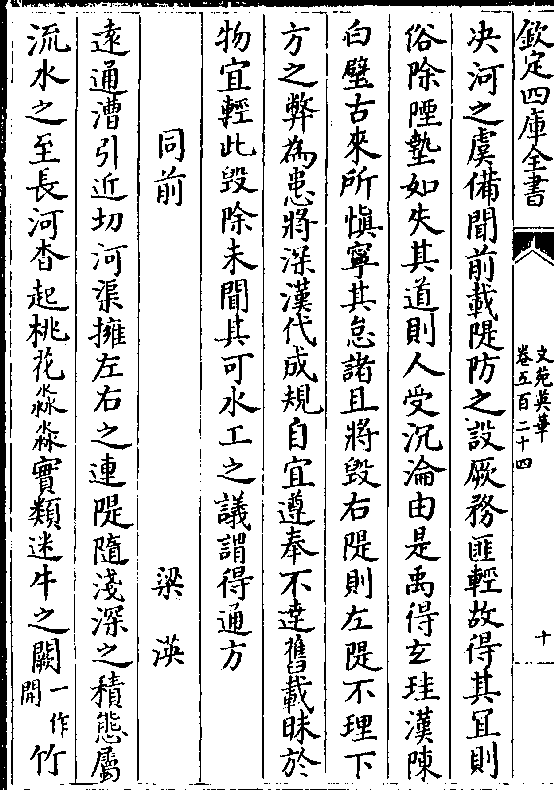 欽定四庫全書
文苑英華
卷五百二十四
十
决河之虞備聞前載隄防之設厥務匪輕故得其宜則
俗除陻墊如失其道則人受沉淪由是禹得玄珪漢陳
白璧古來所慎寧其怠諸且將毀右隄則左隄不理下
方之弊為患將深漢代成規自宜遵奉不達舊載昧於
物宜輕此毀除未聞其可水工之議謂得通方
同前 梁漢
遠通漕引近切河渠擁左右之連隄隨淺深之積態屬
流水之至長河杳起桃花淼淼實類迷牛之闕一作開竹